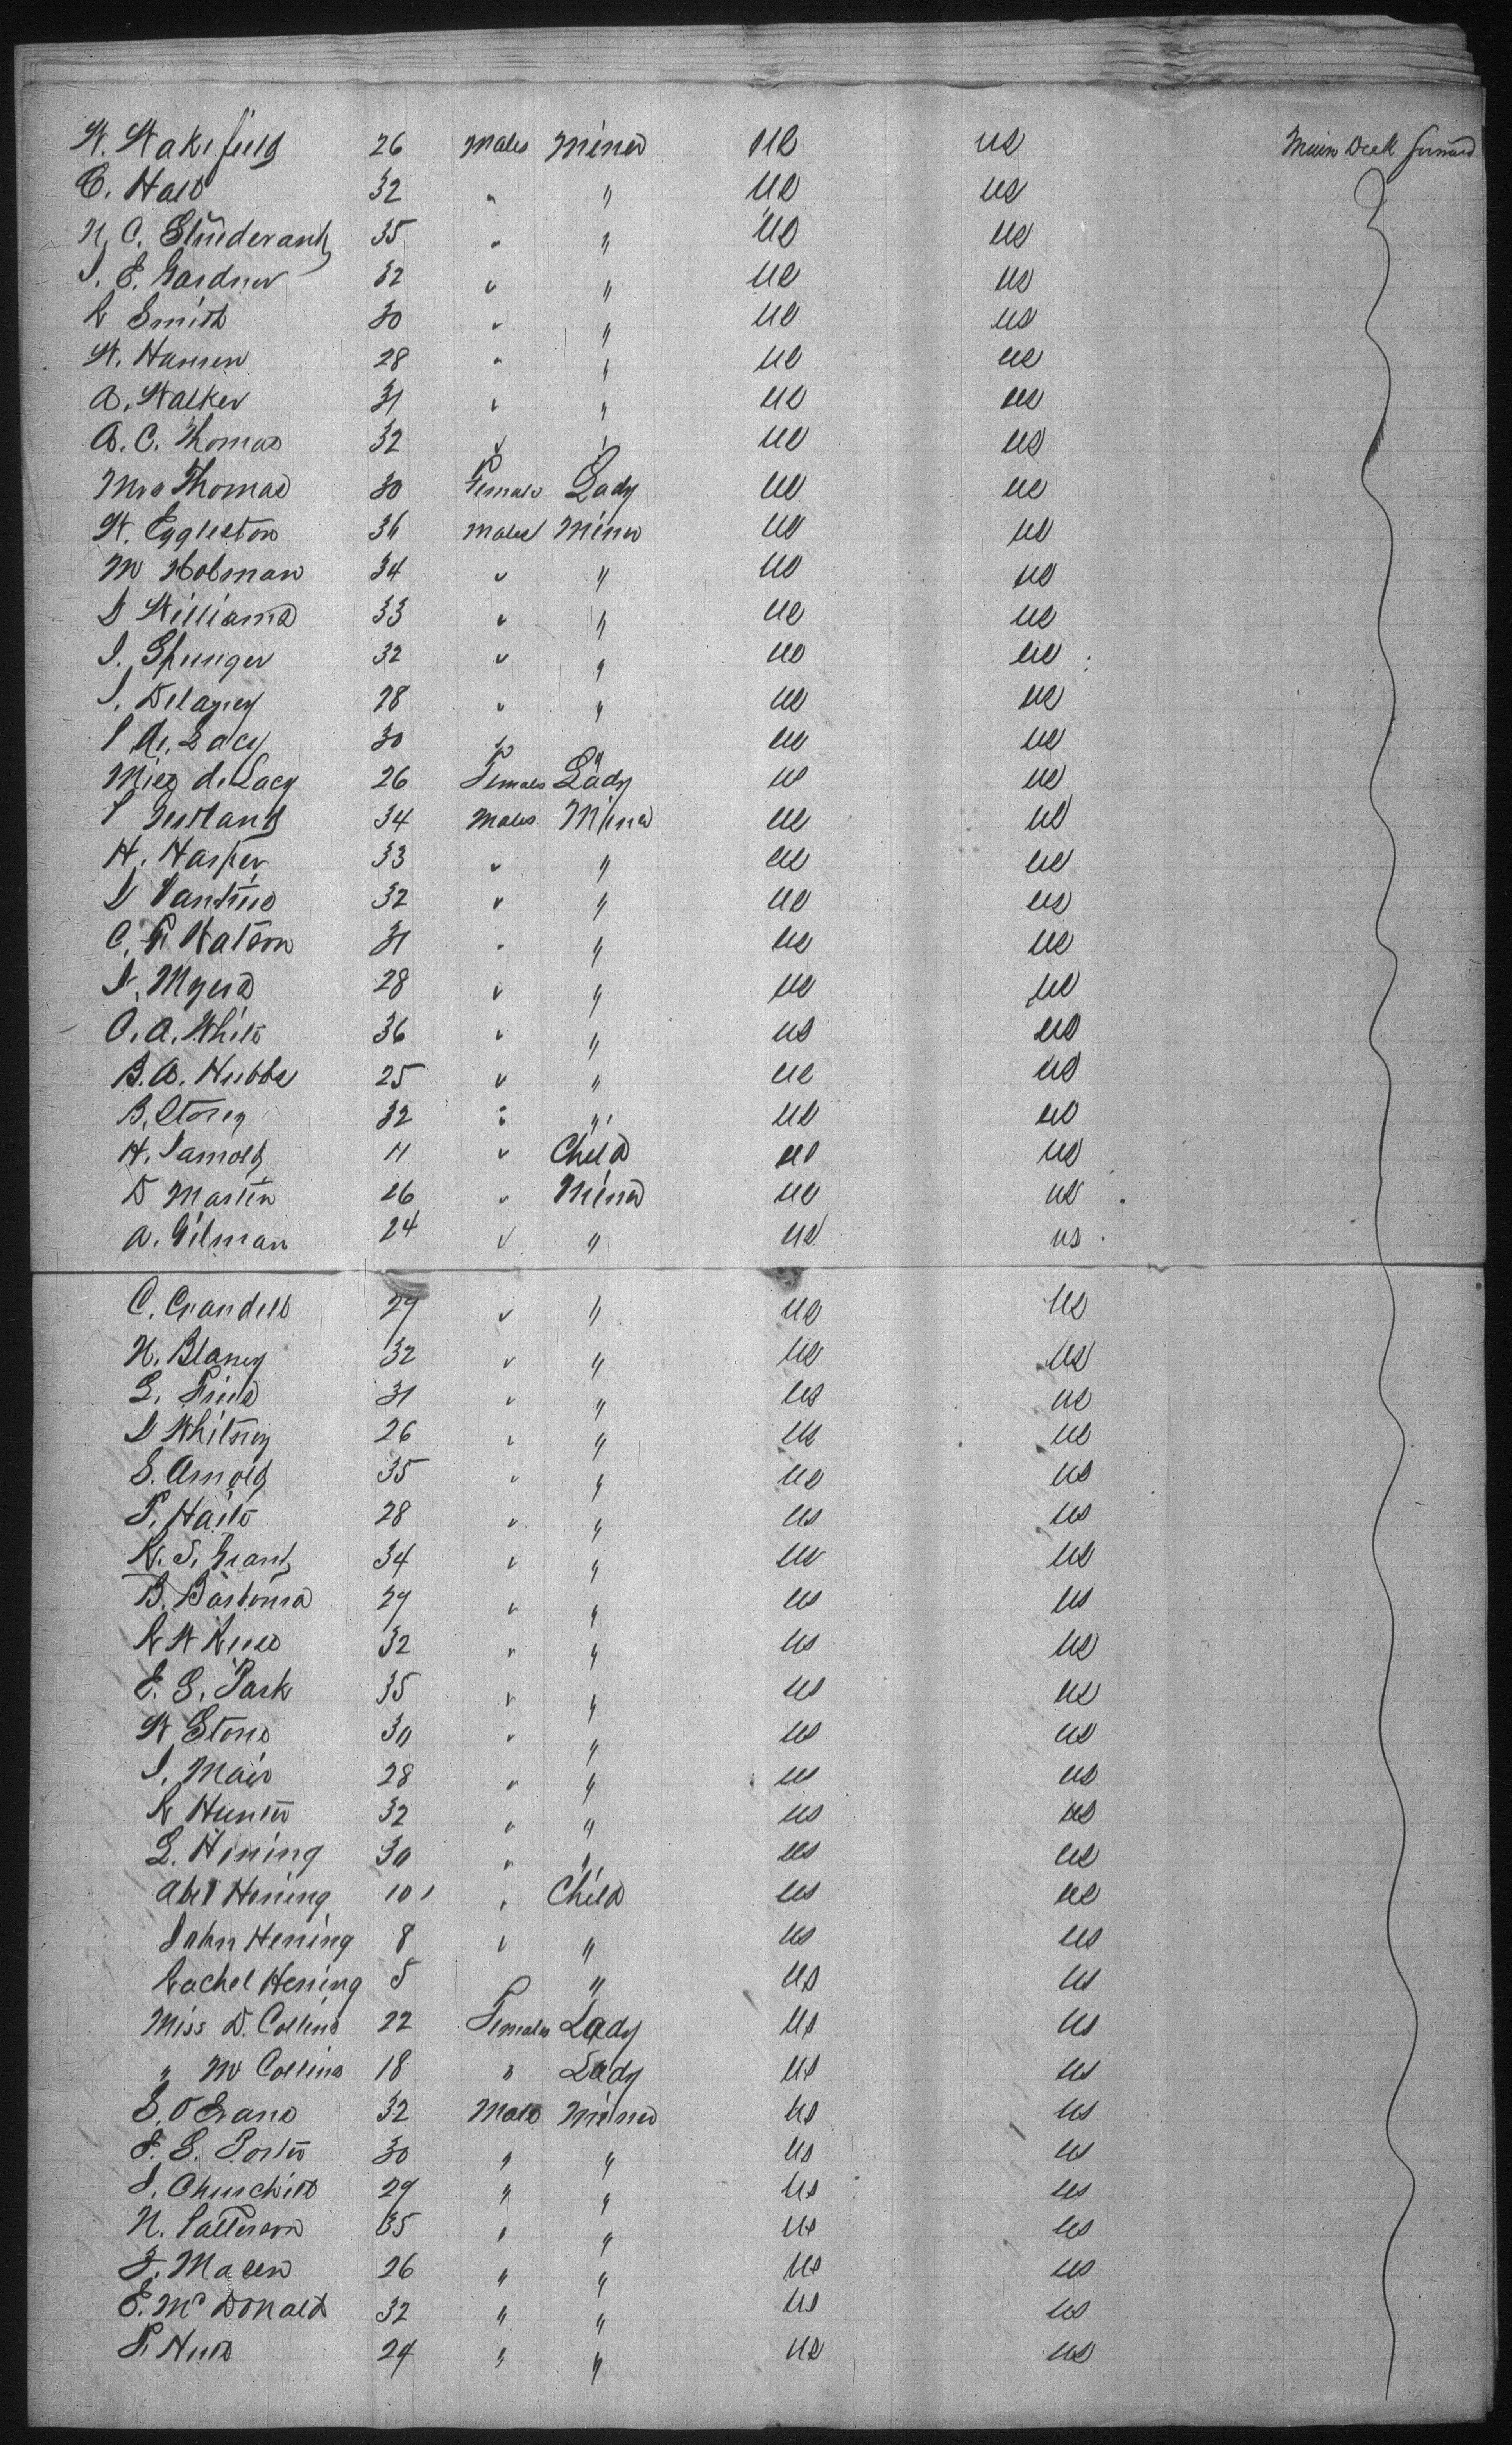 W. Wakefield 26 Male Miner US US Main Deck forward
C. Hall 32 " " US US
N. C. Studevant 35 " " US US
J. E. Gardner 32 " " US US
R Smith 30 " " US US
W. Hansen 28 " " US US
A. Walker 31 " " US US
A. C. Thomas 32 " " US US
Mrs Thomas 30 Female Lady US US
W. Eggleston 36 Male Miner US US
M Holman 34 " " US US
D Williams 33 " " US US
J. Springer 32 " " US US
J. Delaney 28 " " US US
P de Lacy 30 " " US US
Miss de Lacy 26 Female Lady US US
34 Male Miner US US
H. Harper 33 " " US US
32 " " US US
C. F. Watson 31 " " US US
Myers 28 " " US US
O. A. White 36 " " US US
B. A. Hubbs 25 " " US US
B. Storey 32 " " US US
H. 11 " Child US US
D Martin 26 " Miner US US
A. Gilman 24 " " US US
C. Crandell 29 " " US US
N. Blaney 32 " " US US
31 " " US US
D Whitney 26 " " US US
S. Arnold 35 " " US US
T. Haile 28 " " US US
R. S. Grant 34 " " US US
B. 29 " " US US
R W 32 " " US US
E. G. Park 35 " " US US
W Stone 30 " " US US
J. Mair 28 " " US US
R Hunter 32 " " US US
G. Hening 30 " " US US
Abel Hening 10 " Child US US
John Hening 8 " " US US
Rachel Hening 5 " US US
Miss D. Collins 22 Female Lady US US
" M Collins 18 " Lady US US
S. O Evans 32 Male Miner US US
F. G. Porter 30 " " US US
J. Churchill 29 " " US US
N. Patterson 35 " " US US
26 " " US US
E. McDonald 32 " " US US
24 " " US US